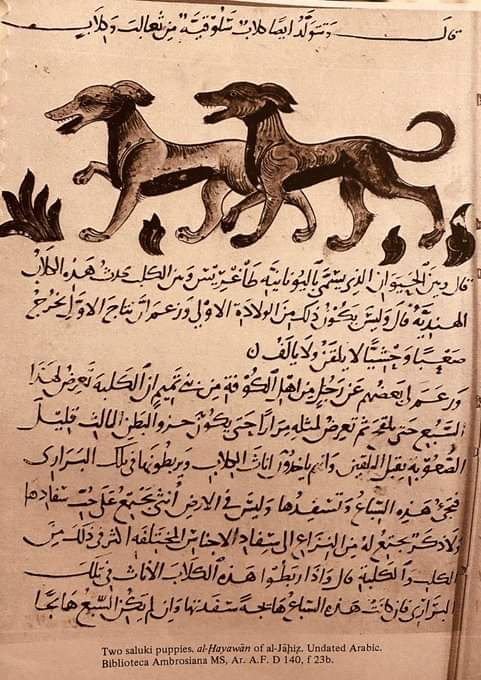 قال وتتولد ايضا كلاب سلوقية من ثعالب وكلاب
قال وبين الحيوان الذي يسمى باليونانية طاغريس ومن الكلب تحدث هذه الكلاب
الهندية قال وليس يكون ذلك من الولادة الاولى وزعم ان نتاج الاول يخرج
صعبا وحشيا لا يلقن ولا يالف
وزعم لي بعضهم عن رجل من اهل الكوفة من بني تميم ان الكلبة تعرض لهذا
السبع حتى تلقح ثم تعرض لمثله مرارا حتى يكون جرو البطن الثالث قليل
الصعوبة يقبل التلقين وانهم ياخذون اناث الكلاب ويربطونها في تلك البراري
فتجيء هذه السباع وتسفدها وليس في الارض انثى يجتمع على حب سفادها
ولا ذكر يجتمع له من النزاع الى سفاد الاجناس المختلفة اكثر في ذلك من
الكلب والكلبة قال واذا ربطوا هذه الكلاب الاناث في تلك
البراري فان كانت هذه السباع هائجة سفدتها وان لم يكن السبع هائجا
Two saluki puppies, al-Ḥayawān of al-Jāḥiẓ. Undated Arabic.
Biblioteca Ambrosiana MS, Ar. A.F. D 140, f 23b.